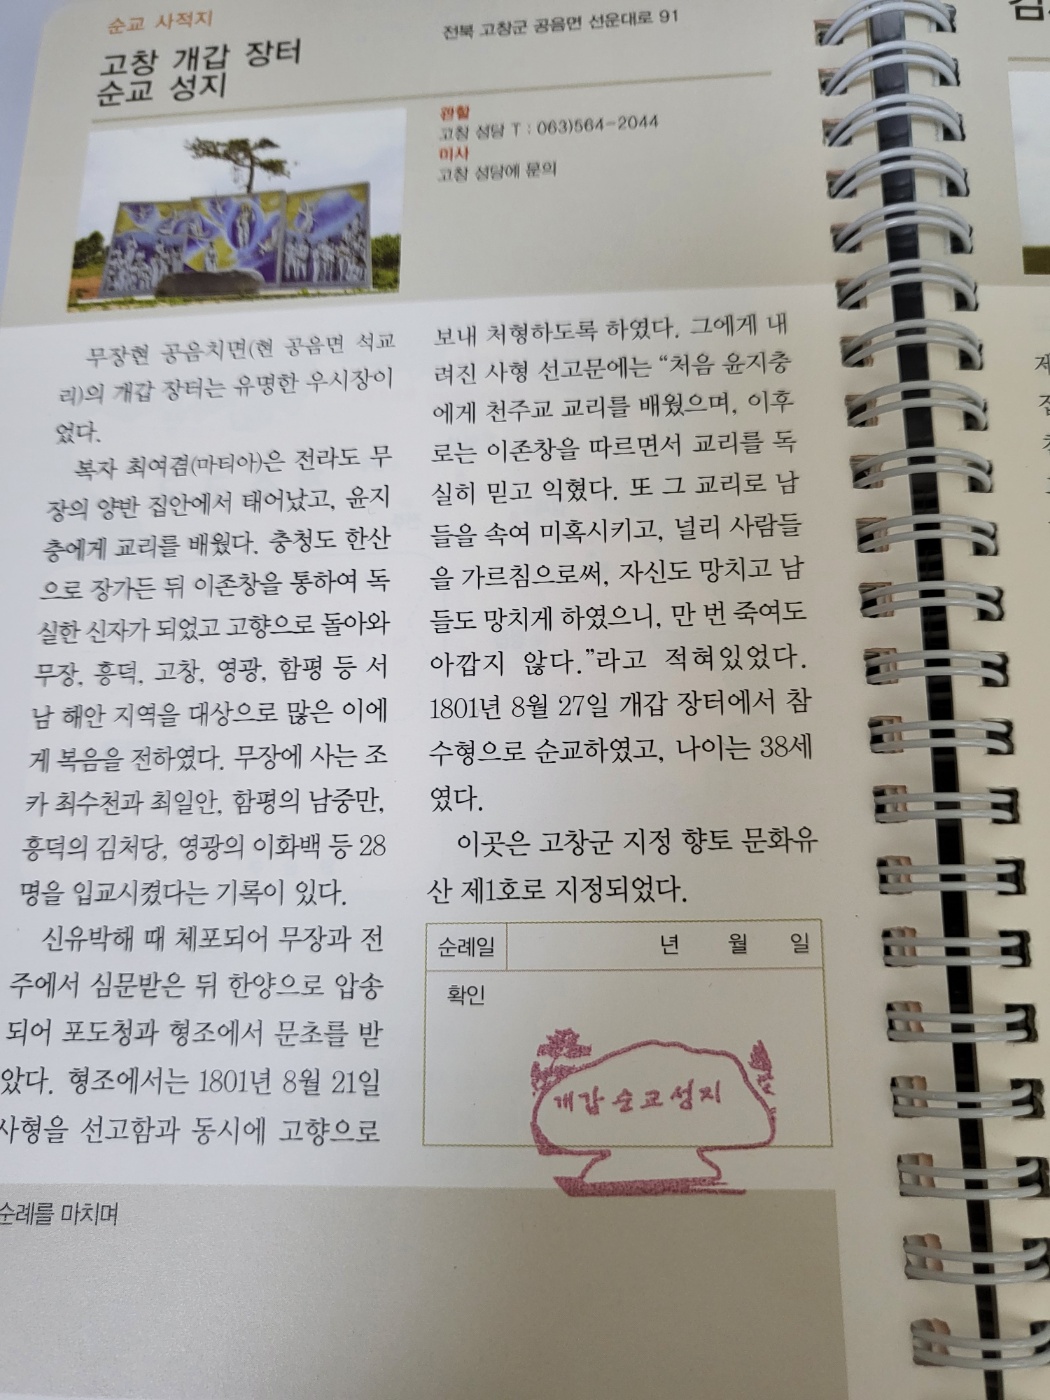 순교 사적지
고창 개갑 장터
순교 성지
전북 고창군 공음면 선운대로 91
관할
고창 성당 T : 063)564-2044
미사
고창 성당에 문의
무장현 공음치면(현 공음면 석교
리)의 개갑 장터는 유명한 우시장이
었다.
복자 최여겸(마티아)은 전라도 무
장의 양반 집안에서 태어났고, 윤지
충에게 교리를 배웠다. 충청도 한산
으로 장가든 뒤 이존창을 통하여 독
실한 신자가 되었고 고향으로 돌아와
무장, 흥덕, 고창, 영광, 함평 등 서
남 해안 지역을 대상으로 많은 이에
게 복음을 전하였다. 무장에 사는 조
카 최수천과 최일안, 함평의 남중만,
흥덕의 김처당, 영광의 이화백 등 28
명을 입교시켰다는 기록이 있다.
신유박해 때 체포되어 무장과 전
주에서 심문받은 뒤 한양으로 압송
되어 포도청과 형조에서 문초를 받
았다. 형조에서는 1801년 8월 21일
사형을 선고함과 동시에 고향으로
보내 처형하도록 하였다. 그에게 내
려진 사형 선고문에는 “처음 윤지충
에게 천주교 교리를 배웠으며, 이후
로는 이존창을 따르면서 교리를 독
실히 믿고 익혔다. 또 그 교리로 남
들을 속여 미혹시키고, 널리 사람들
을 가르침으로써, 자신도 망치고 남
들도 망치게 하였으니, 만 번 죽여도
아깝지 않다.”라고 적혀있었다.
1801년 8월 27일 개갑 장터에서 참
수형으로 순교하였고, 나이는 38세
였다.
이곳은 고창군 지정 향토 문화유
산 제1호로 지정되었다.
순례일 년 월 일
확인
개갑순교성지
순례를 마치며